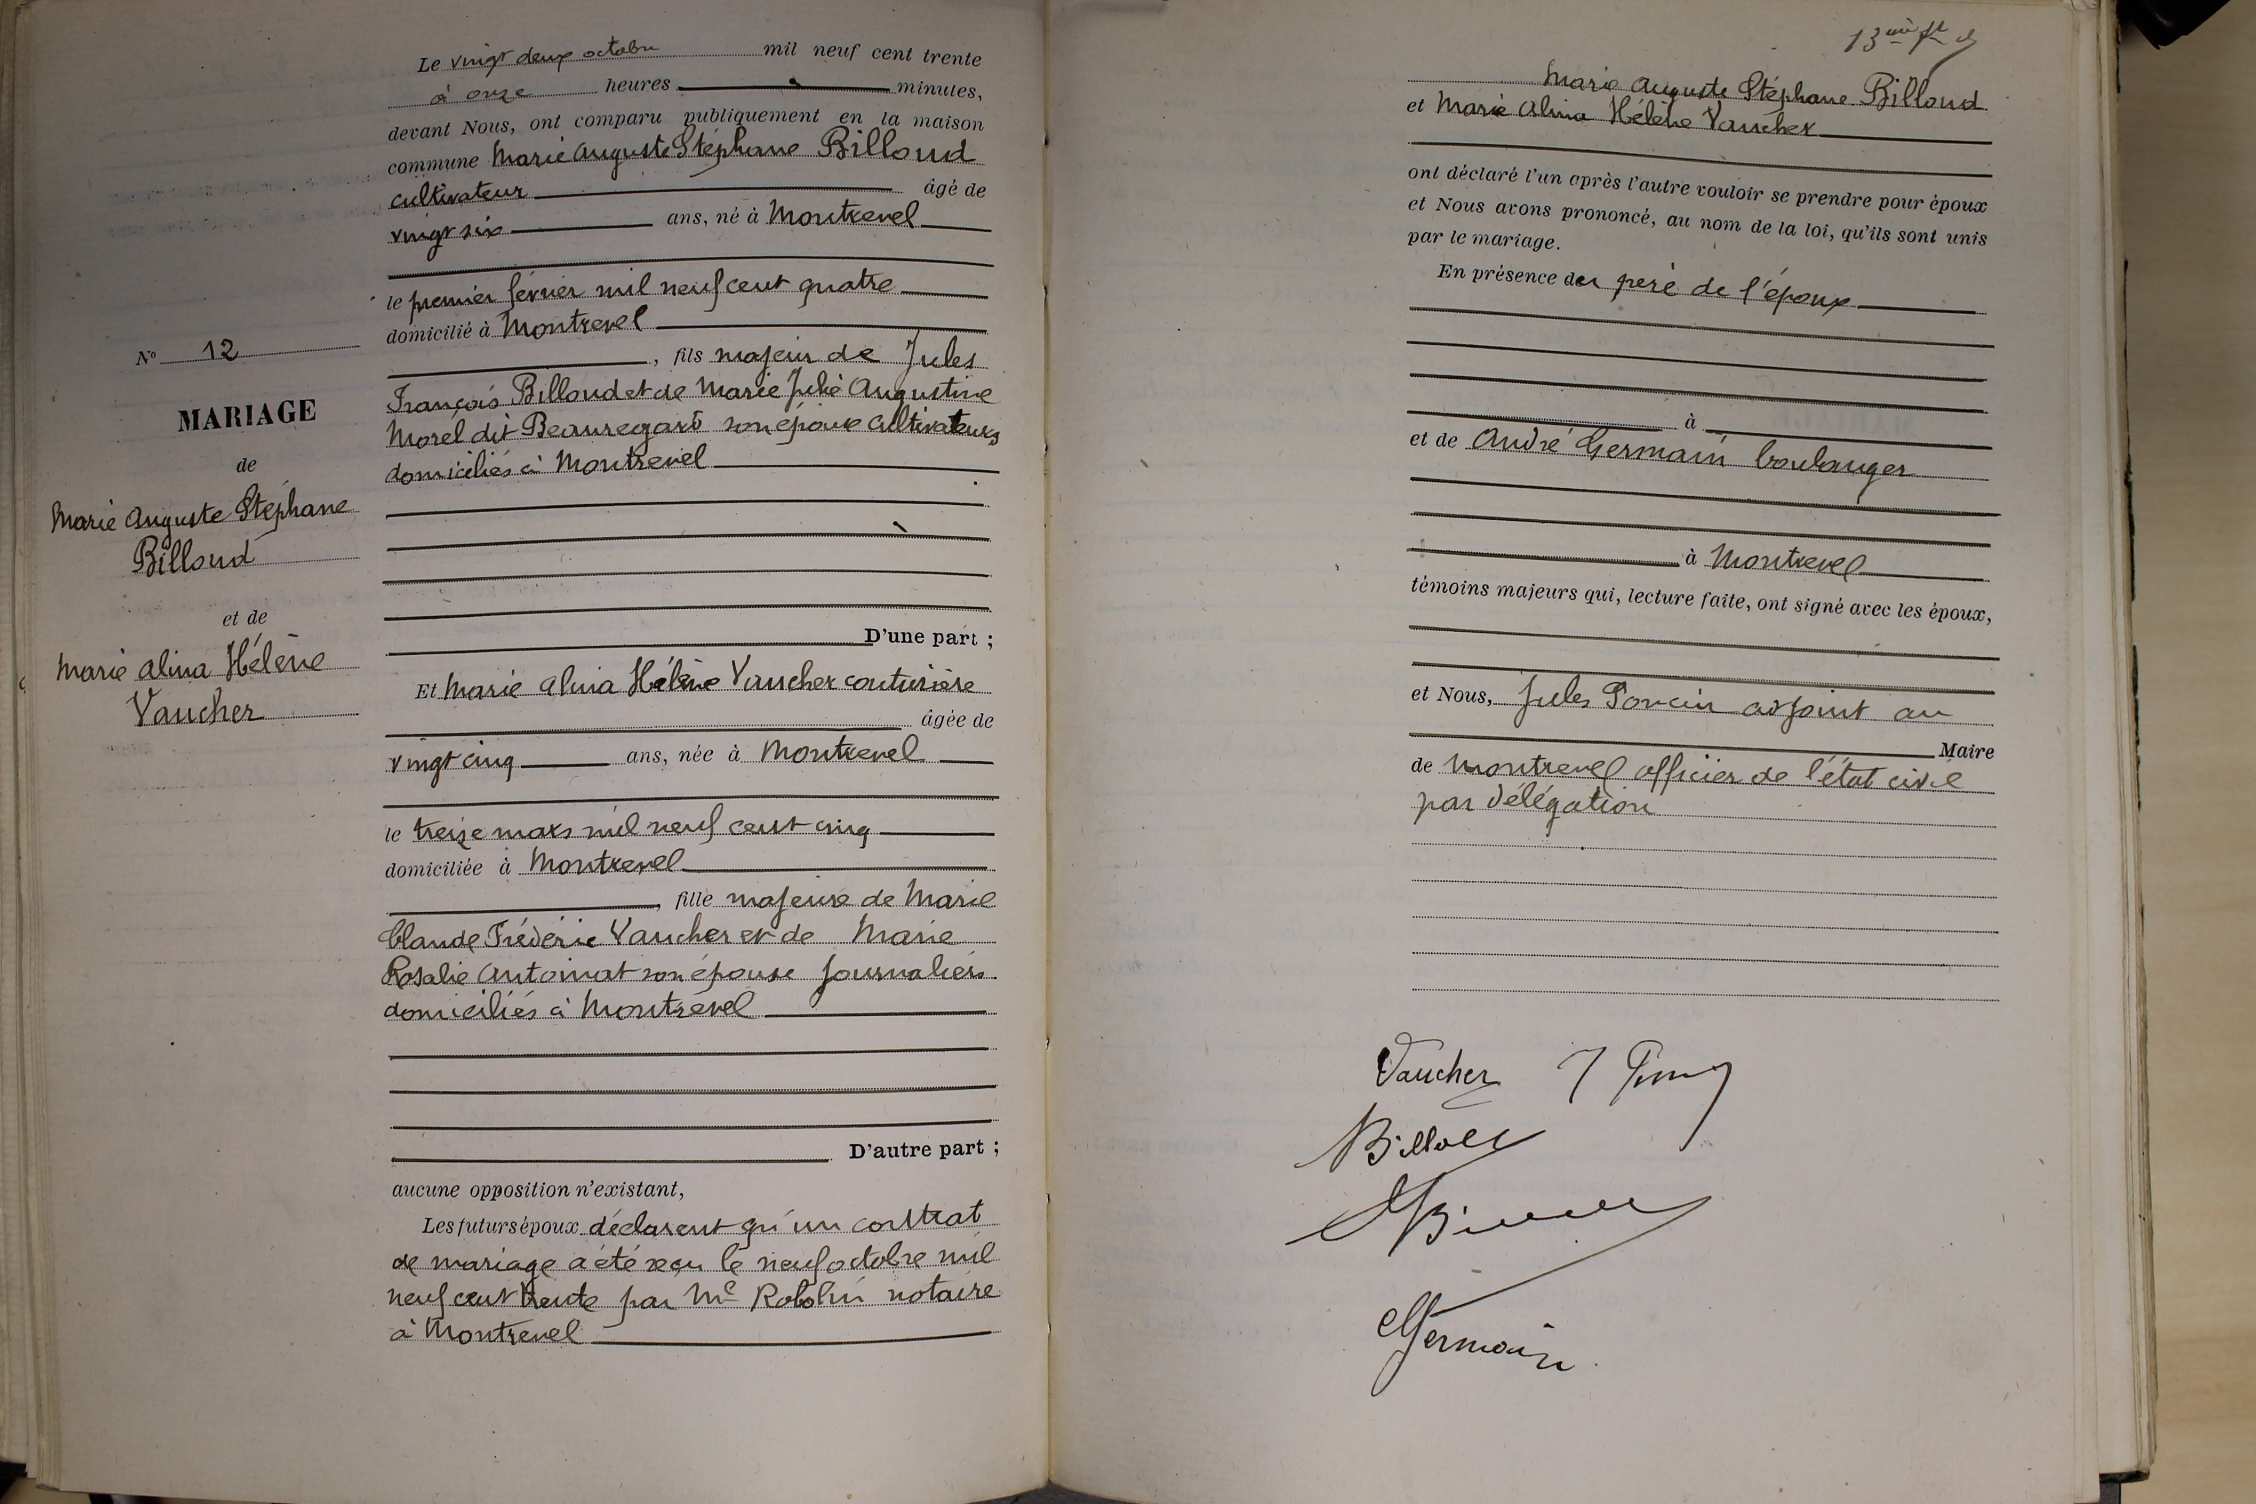 Le vingt deux octobre mil neuf cent trente
à onze heures minutes,
devant Nous, ont comparu publiquement en la maison
commune Marie Auguste Stéphane Billoud
cultivateur âgé de
vingt six ans, né à Montrevel
le premier février mil neuf cent quatre
domicilié à Montrevel
, fils majeur de Jules
François Billoud et de Marie Julie Augustine
Morel dit Beauregard son épouse cultivateurs
domiciliés à Montrevel
D'une part ;
Nº 12
MARIAGE
de
Marie Auguste Stéphane
Billoud
et de
Marie Alina Hélène
Vaucher
Et Marie Alina Hélène Vaucher couturière
âgée de
vingt cinq ans, née à Montrevel
le treize mars mil neuf cent cinq
domiciliée à Montrevel
, fille majeure de Marie
Claude Frédéric Vaucher et de Marie
Rosalie Antoinat son épouse journaliers
domiciliés à Montrevel
D'autre part ;
aucune opposition n'existant,
Les futurs époux déclarent qu'un contrat
de mariage a été reçu le neuf octobre mil
neuf cent trente par Me Robolin notaire
à Montrevel
Marie Auguste Stéphane Billoud
et Marie Alina Hélène Vaucher
ont déclaré l'un après l'autre vouloir se prendre pour époux
et Nous avons prononcé, au nom de la loi, qu'ils sont unis
par le mariage.
En présence du père de l'époux
à
et de André Germain boulanger
à Montrevel
témoins majeurs qui, lecture faite, ont signé avec les époux,
et Nous, Jules Poncin adjoint au
Maire
de Montrevel officier de l'état civil
par délégation
Vaucher
Billoud
Germain